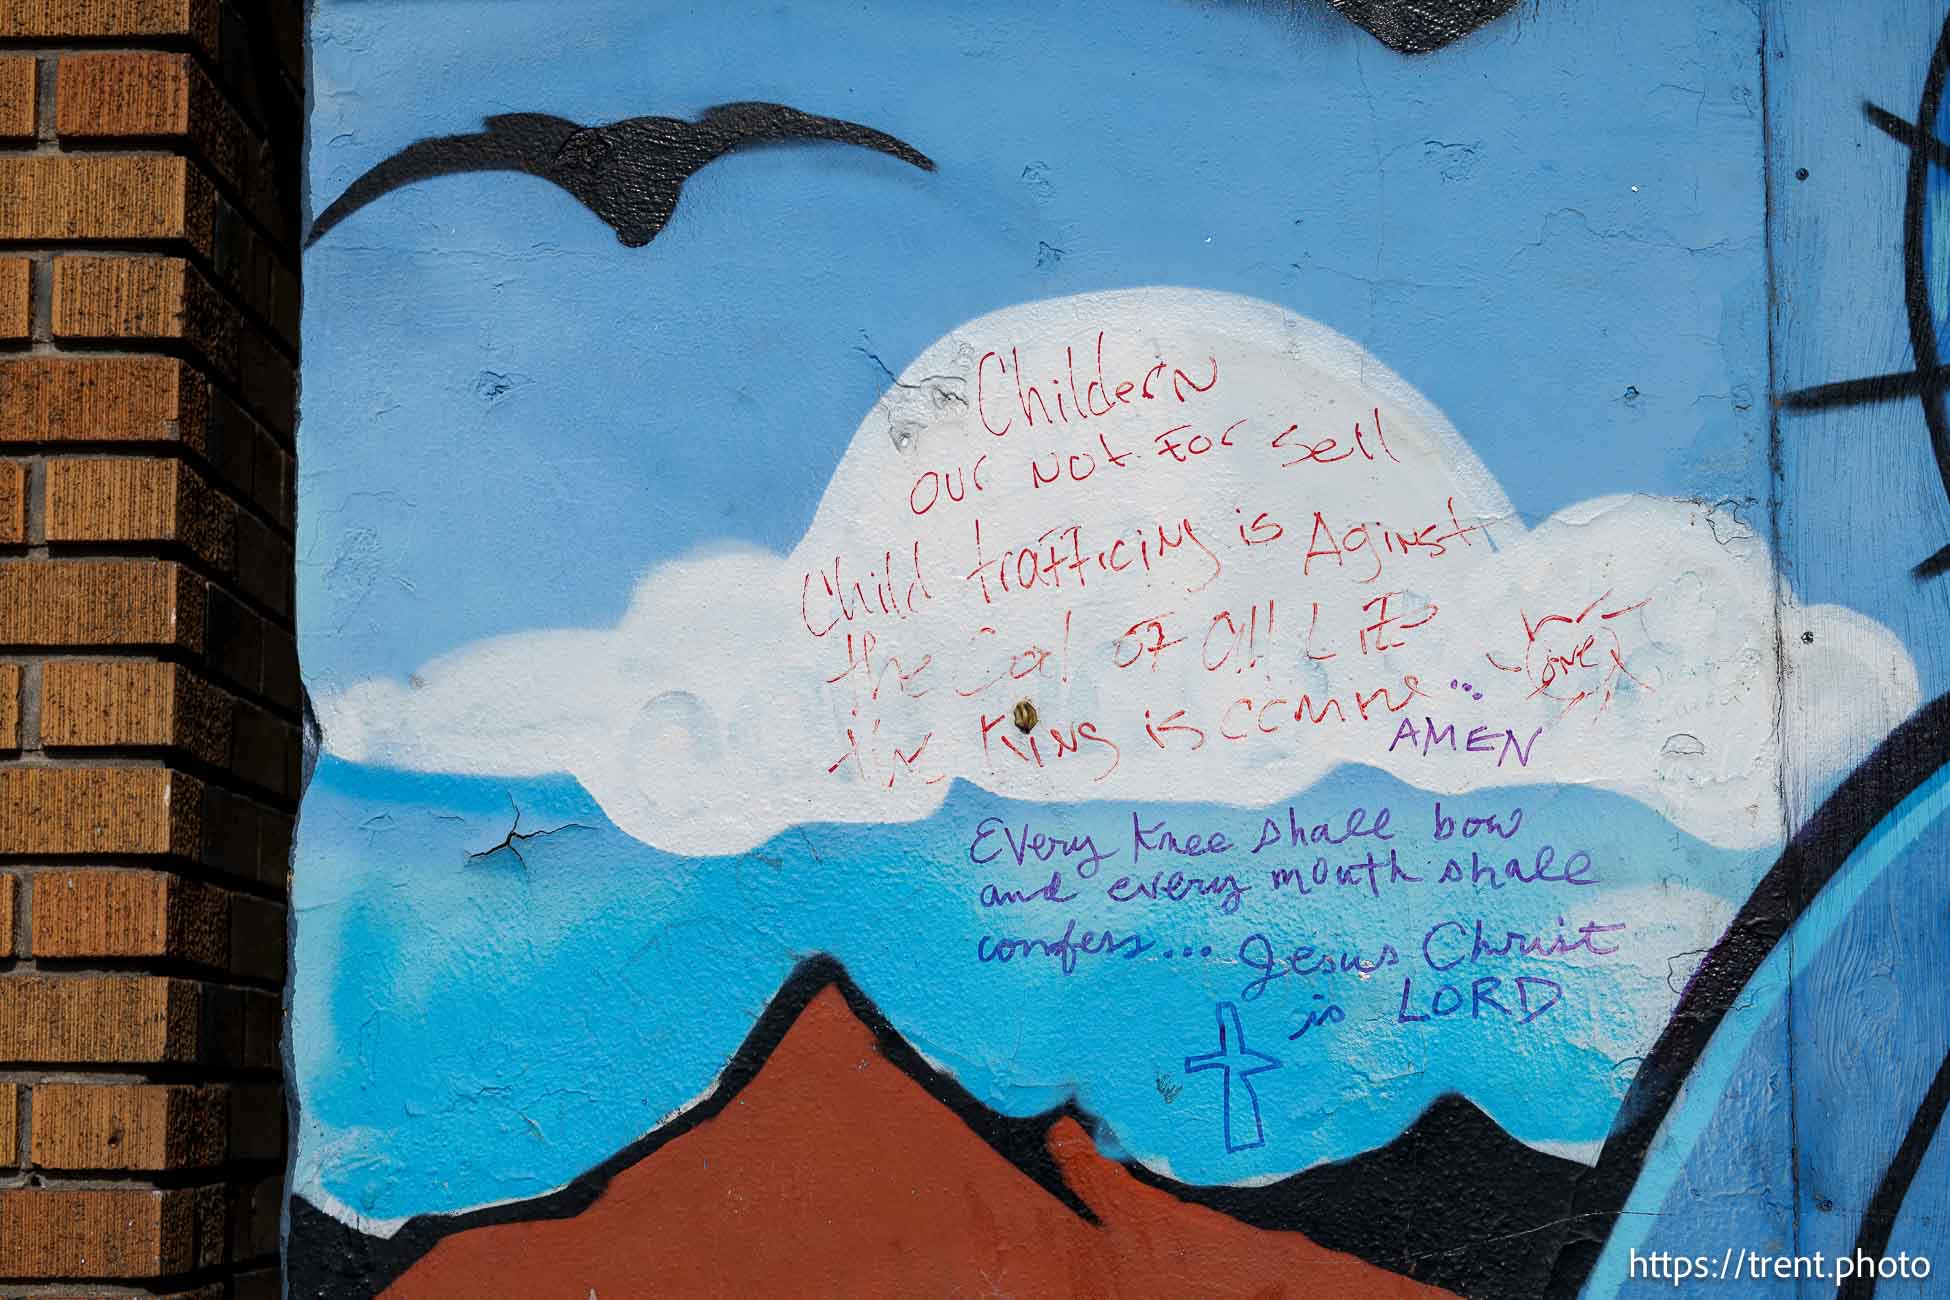 Childern
our Not For Sell
Child trafficing is Aginst
the God of All LiFe
the King is comine ...
Love
AMEN
Every knee shall bow
and every mouth shall
confess... Jesus Christ
is LORD
https://trent.photo